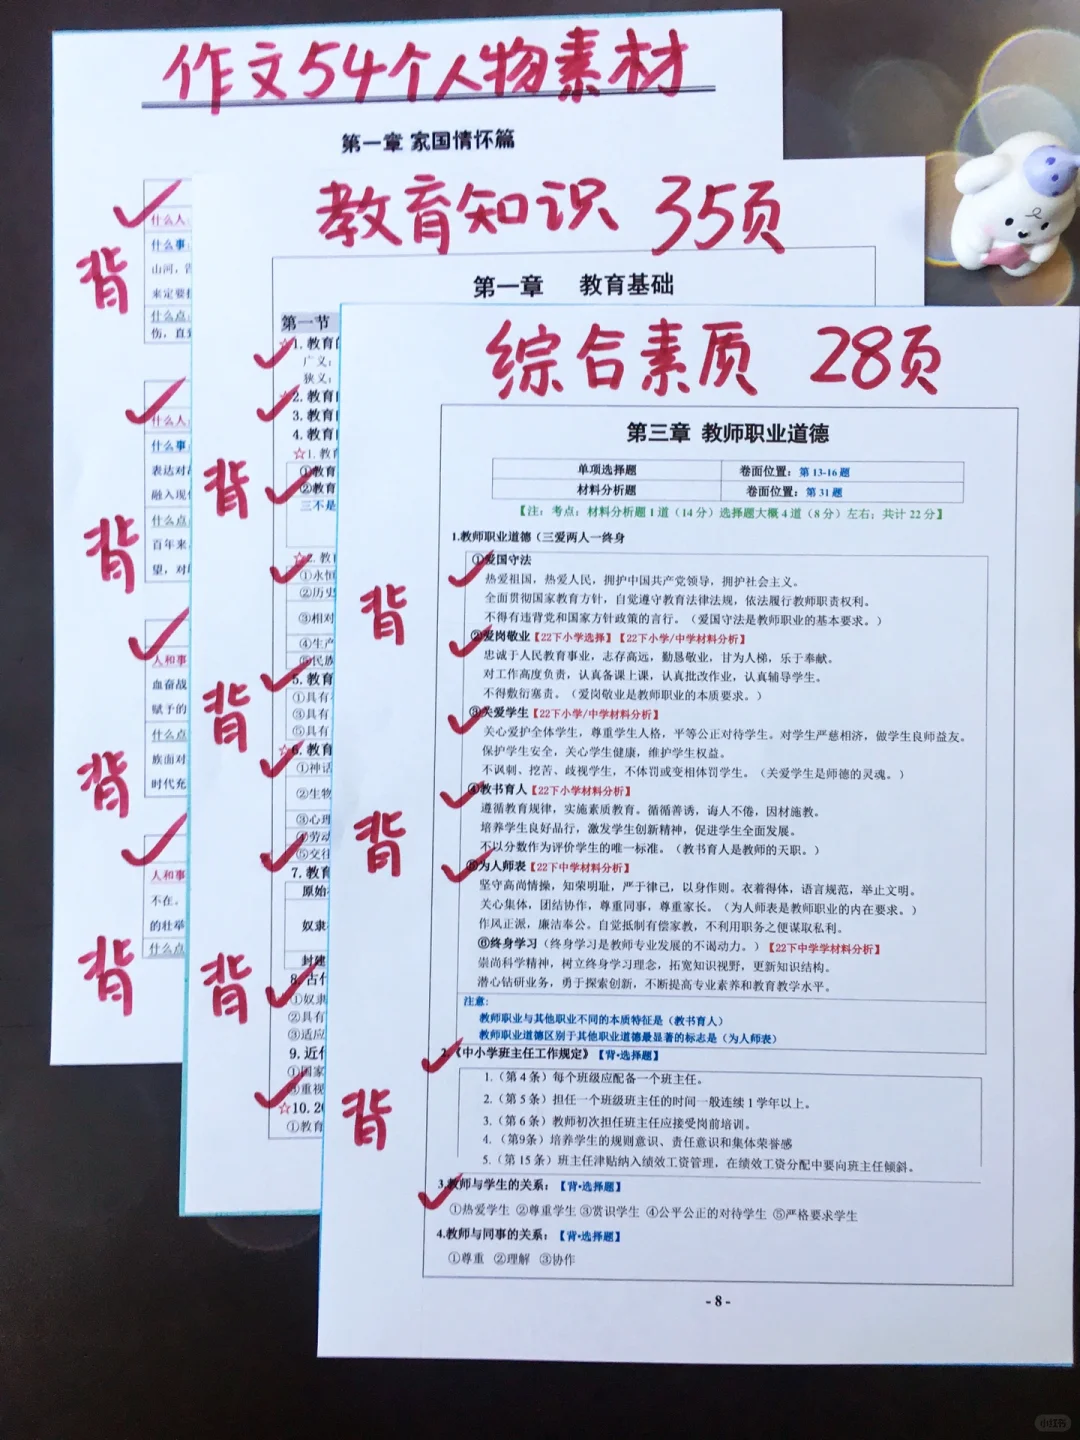 作文54个人物素材
第一章 家国情怀篇
什么人:
什么事:
山河,
来定要
什么点:
伤,直
背
什么人:
什么事:
表达对
融入现
什么点:
百年来
望,对
背
人和事
血奋战
赋予的
什么点
族面对
时代充
背
人和事
不在。
的壮举
什么点
背
教育知识 35页
第一章 教育基础
第一节
☆1.教育
广义:
狭义:
☆2.教育
3.教育
4.教育
☆1.教育
①教育
②教育
三不是
背
☆2.教育
①永恒
②历史
③相对
④生产
⑤民族
5.教育
①具有
③具有
⑤具有
背
☆6.教育
①神话
②生物
③心理
④劳动
⑤交往
7.教育
原始
奴隶
封建
8.古代
①奴隶
②具有
③适应
背
9.近代
①国家
③重视
☆10.20
①教育
综合素质 28页
第三章 教师职业道德
单项选择题 卷面位置:第13-16题
材料分析题 卷面位置:第31题
【注:考点:材料分析题1道(14分)选择题大概4道(8分)左右;共计22分】
1.教师职业道德(三爱两人一终身
①爱国守法
热爱祖国,热爱人民,拥护中国共产党领导,拥护社会主义。
全面贯彻国家教育方针,自觉遵守教育法律法规,依法履行教师职责权利。
不得有违背党和国家方针政策的言行。(爱国守法是教师职业的基本要求。)
背
②爱岗敬业【22下小学选择】【22下小学/中学材料分析】
忠诚于人民教育事业,志存高远,勤恳敬业,甘为人梯,乐于奉献。
对工作高度负责,认真备课上课,认真批改作业,认真辅导学生。
不得敷衍塞责。(爱岗敬业是教师职业的本质要求。)
③关爱学生【22下小学/中学材料分析】
关心爱护全体学生,尊重学生人格,平等公正对待学生。对学生严慈相济,做学生良师益友。
保护学生安全,关心学生健康,维护学生权益。
不讽刺、挖苦、歧视学生,不体罚或变相体罚学生。(关爱学生是师德的灵魂。)
④教书育人【22下小学材料分析】
遵循教育规律,实施素质教育。循循善诱,诲人不倦,因材施教。
培养学生良好品行,激发学生创新精神,促进学生全面发展。
不以分数作为评价学生的唯一标准。(教书育人是教师的天职。)
背
⑤为人师表【22下中学材料分析】
坚守高尚情操,知荣明耻,严于律己,以身作则。衣着得体,语言规范,举止文明。
关心集体,团结协作,尊重同事,尊重家长。(为人师表是教师职业的内在要求。)
作风正派,廉洁奉公。自觉抵制有偿家教,不利用职务之便谋取私利。
⑥终身学习(终身学习是教师专业发展的不竭动力。)【22下中学学材料分析】
崇尚科学精神,树立终身学习理念,拓宽知识视野,更新知识结构。
潜心钻研业务,勇于探索创新,不断提高专业素养和教育教学水平。
注意:
教师职业与其他职业不同的本质特征是(教书育人)
教师职业道德区别于其他职业道德最显著的标志是(为人师表)
2.《中小学班主任工作规定》【背·选择题】
1.(第4条)每个班级应配备一个班主任。
2.(第5条)担任一个班级班主任的时间一般连续1学年以上。
3.(第6条)教师初次担任班主任应接受岗前培训。
4.(第9条)培养学生的规则意识、责任意识和集体荣誉感
5.(第15条)班主任津贴纳入绩效工资管理,在绩效工资分配中要向班主任倾斜。
背
3.教师与学生的关系:【背·选择题】
①热爱学生 ②尊重学生 ③赏识学生 ④公平公正的对待学生 ⑤严格要求学生
4.教师与同事的关系:【背·选择题】
①尊重 ②理解 ③协作
- 8 -
小红书